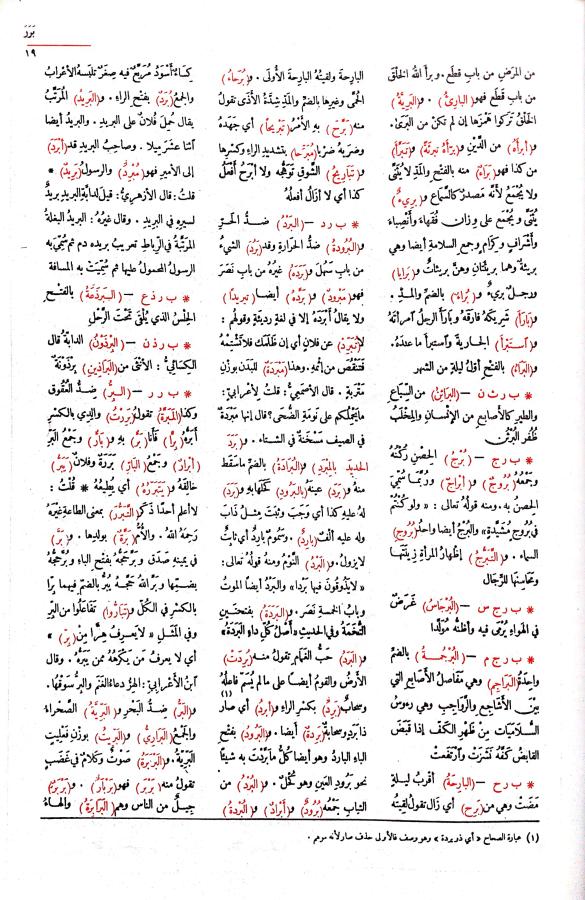 بَرَرَ
١٩
من المرض من باب قطع. وبرأ الله الخلقَ
من باب قَطع فهو (البارئُ) . و(البَرِيَّةُ)
الخلْقُ تركوا هَمْزَها إن لم تكن من البَرَى.
و(أبرأَهُ) من الدَّين و(بَرَّأهُ تَبرِئَةً) و(تَبَرَّأَ)
من كذا فهو (بَرَاءٌ) منه بالفتح والمدّ لا يُثَنَّى
ولا يُجْمَعُ لأنه مَصدرٌ كالسَّماع و(بَرِيءٌ)
يُثَنَّى ويُجْمَع على وزان فُقَهاءَ وأنْصِباءَ
وأشْرافٍ وكِرامٍ وجمعِ السلامة أيضا وهي
بَريئةٌ وهما بريئتان وهُنَّ بريئاتٌ و(بَرَايا)
ورجلٌ بَرِيءٌ و(بُرَاءٌ) بالضم والمدّ .
و(بَارَأَ) شريكَهُ فارقه وبارأ الرجلُ امرأتَهُ
و(اسْتَبْرَأَ) الجاريةَ واستبرأ ما عندهُ.
و(البَرَاءُ) بالفتح أوّلُ ليلةٍ من الشهر
* ب ر ث ن – (البَرَاثِنُ) من السِّباع
والطير كالأصابع من الإنْسان والمِخْلَبُ
ظُفُر البُرْثُنِ
* ب ر ج – (بُرْجُ) الحِصْنِ رُكْنُهُ
وجمعُهُ (بُرُوجٌ) و(أبْرَاجٌ) ورُبَّما سُمِّيَ
الحِصنُ به. ومنه قولُه تعالى : «ولو كُنْتُمْ
في بُرُوجٍ مُشَيَّدةٍ» والبُرْجُ أيضا واحدُ (بُرُوجِ)
السماءِ . و(التَّبَرُّجُ) إظهارُ المرأةِ زِينَتَها
ومحاسِنَها للرِّجال
* ب ر ج س – (البُرْجَاسُ) غَرَضٌ
في الهواءِ يُرْمَى فيه وأظنُّه مُولَّداً
* ب ر ج م – (البُرْجُمَةُ) بالضم
واحِدةُ (البَرَاجِمِ) وهي مَفَاصِلُ الأصابعِ التي
بينَ الأشاجِعِ والرَّواجِبِ وهي رءوسُ
السُّلامَيَاتِ من ظَهْرِ الكَفِّ إذا قَبَضَ
القابضُ كفَّهُ نَشَزَتْ وارْتفعتْ
* ب ر ح – (البارِحَةُ) أقربُ ليلةٍ
مَضَتْ وهي من (بَرِحَ) أي زال تقول لَقِيتُه
البارِحةَ ولقيتُهُ البارحةَ الأولَى . و(بُرَحَاءُ)
الحُمَّى وغيرِها بالضمّ والمدّ شِدَّةُ الأذَى تقولُ
منه (بَرَّحَ) به الأمرُ (تَبْرِيحاً) أي جَهَدَهُ
وضربَهُ ضَرْباً (مُبَرِّحاً) بتشديد الراءِ وكسرِها
و(تَبَارِيحُ) الشَّوقِ تَوَهُّجُه ولا أبْرَحُ أفْعَلُ
كذا أي لا أزالُ أفعلُهُ
* ب ر د – (البَرْدُ) ضدُّ الحَرِّ
و(البُرُودَةُ) ضدُّ الحَرارةِ وقد (بَرُدَ) الشيءُ
من باب سَهُلَ و(بَرَدَهُ) غيرُهُ من باب نَصَرَ
فهو (مَبْرُودٌ) و(بَرَّدَهُ) أيضا (تبريداً)
ولا يقالُ أبْرَدَهُ إلا في لغةٍ رديئةٍ وقولُهم :
لا (تُبَرِّدْ) عن فلانٍ أي إن ظَلَمَكَ فلا تَشْتِمْهُ
فتَنْقُصَ من إثمِهِ. وهذا (مَبْرَدَةٌ) للبَدَنِ بوزنِ
مَتْرَبَةٍ . قال الأصمعيُّ: قلتُ لأعْرابيٍّ:
ما يَحْمِلُكم على نَوْمةِ الضُّحَى؟ قال إنها مَبْرَدَةٌ
في الصيف مَسْخَنَةٌ في الشتاء . و(بَرَدَ
الحديدَ بالمِبْرَدِ) و(البُرَادَةُ) بالضمّ ما سَقَط
منه و(بَرَدَ) عينَهُ (بالبَرُودِ) كَحَّلَها به و(بَرَدَ)
له عليه كذا أي وَجَبَ وثَبَتَ مِثْلُ ذَابَ
وله عليه ألْفٌ (بَارِدٌ). وسَمُومٌ باردٌ أي ثابتٌ
لا يزولُ. و(البَرْدُ) النَّوْمُ ومنه قولُهُ تعالى:
«لا يَذُوقُونَ فيها بَرْداً» والبَرْدُ أيضاً الموتُ
وبابُ الخمسةِ نَصَر . و(البَرَدَةُ) بفتحتين
التُّخَمَةُ وفي الحديث «أصْلُ كلِّ داءٍ البَرَدَةُ»
و(البَرَدُ) حَبُّ الغَمَامِ تقولُ منه (بُرِدَتِ)
الأرضُ والقومُ أيضا على ما لم يُسَمَّ فاعلُهُ
وسحابٌ (بَرِدٌ) بكسر الراءِ و(أبْرَدُ) أي صار(١)
ذا بَرَدٍ وسحابةٌ (بَرِدَةٌ) أيضا . و(البَرُودُ) بفتح
الباءِ الباردُ وهو أيضا كلُّ ما بَرَدْتَ به شيئاً
نحو بَرُودِ العينِ وهو كُحْلٌ . و(البُرْدُ) من
الثيابِ جمعُهُ (بُرُودٌ) و(أبْرَادٌ) و(البُرْدَةُ)
كِساءٌ أسْوَدُ مُرَبَّعٌ فيه صِغَرٌ تلبَسهُ الأعرابُ
والجمعُ (بُرَدٌ) بفتح الراءِ . و(البَرِيدُ) المُرَتَّبُ
يقالُ حُمِلَ فُلانٌ على البَرِيدِ . والبَرِيدُ أيضا
اثنا عَشَرَ ميلا . وصاحبُ البَريدِ قد (أبْرَدَ)
إلى الأميرِ فهو (مُبْرِدٌ) والرسولُ (بَرِيدٌ) *
قلتُ: قال الأزهريُّ: قيلَ لدابَّةِ البريدِ بَريدٌ
لسيرِهِ في البريدِ . وقال غيرُهُ: البريدُ البغلةُ
المُرَتَّبةُ في الرِّباطِ تعريبُ بريده دم ثم سُمِّيَ به
الرسولُ المحمولُ عليها ثم سُمِّيَتْ به المسافة
* ب ر ذ ع – (البَرْذَعَةُ) بالفتح
الحِلْسُ الذي يُلْقَى تَحْتَ الرَّحْلِ
* ب ر ذ ن – (البِرْذَوْنُ) الدابةُ قال
الكسائيُّ: الأنثى من (البَراذِينِ) بِرْذَوْنَةٌ
* ب ر ر – (البِرُّ) ضِدُّ العُقُوقِ
وكذا (المَبَرَّةُ) تقولُ (بَرِرْتُ) والدِي بالكسرِ
أبَرُّهُ (بِرًّا) فأنا (بَرٌّ) به و(بَارٌّ) وجَمْعُ البَرِّ
(أبْرَارٌ) وجمعُ (البارِّ) بَرَرَةٌ وفلانٌ (يَبَرُّ)
خالِقَهُ و(يَتَبَرَّرُهُ) أي يُطِيعُهُ * قُلْتُ :
لا أعلم أحدًا ذَكَرَ (التَّبَرُّرَ) بمعنى الطاعةِ غيرَهُ
رَحِمَهُ اللهُ . والأُمُّ (بَرَّةٌ) بولدِها . و(بَرَّ)
في يمينهِ صَدَقَ وبَرَّ حَجُّهُ بفتح الباءِ وبُرَّ حَجُّهُ
بضمِّها وبَرَّ اللهُ حَجَّهُ يُبَرُّ بالضم فيهما بِرًّا
بالكسرِ في الكلِّ و(تَبَارُّوا) تفاعَلُوا من البِرِّ
وفي المَثَلِ «لا يَعرِفُ هِرًّا مِن (بِرٍّ)»
أي لا يعرفُ مَن يَكْرَهُهُ مِمَّن يَبَرُّهُ . وقال
ابنُ الأعْرابيِّ: الهِرُّ دعاءُ الغَنَمِ والبِرُّ سَوْقُها.
و(البَرُّ) ضدُّ البَحْرِ و(البَرِّيَّةُ) الصَّحْراءُ
والجمعُ (البَرَارِيُّ) و(البَرِّيتُ) بوزنِ فَعْلِيتٍ
البَرِّيَّةُ. و(البَرْبَرَةُ) صَوْتٌ وكلامٌ في غَضَبٍ
تقولُ منه (بَرْبَرَ) فهو (بَرْبَارٌ) . و(بَرْبَرٌ)
جِيلٌ من الناسِ وهم (البَرَابِرَةُ) والهاءُ
(١) عبارة الصحاح «أي ذو بردة» وهو وصف فالأولى حذف صار لأنه موهم .